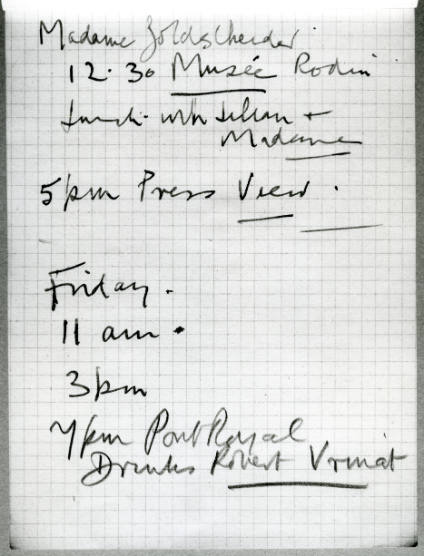 Madame Goldscheider
12.30 Musée Rodin
Lunch with Lilian +
Madame
5pm Press View.
Friday.
11 am.
3pm
7pm Pont Royal
Drinks Robert Vrinat